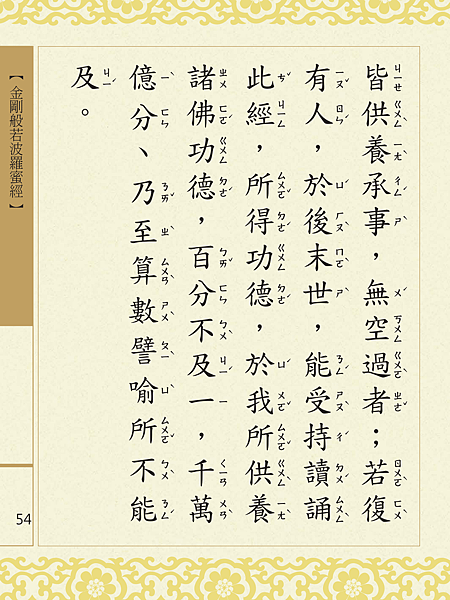 皆供養承事，無空過者；若復
有人，於後末世，能受持讀誦
此經，所得功德，於我所供養
諸佛功德，百分不及一，千萬
億分、乃至算數譬喻所不能
及。
【金剛般若波羅蜜經】
54